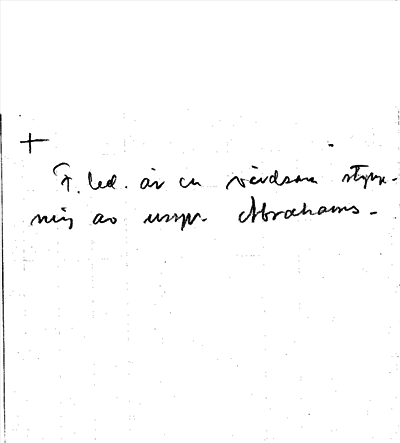 +
F. led. är en våldsam stymp-
ning av urspr. Abrahams-